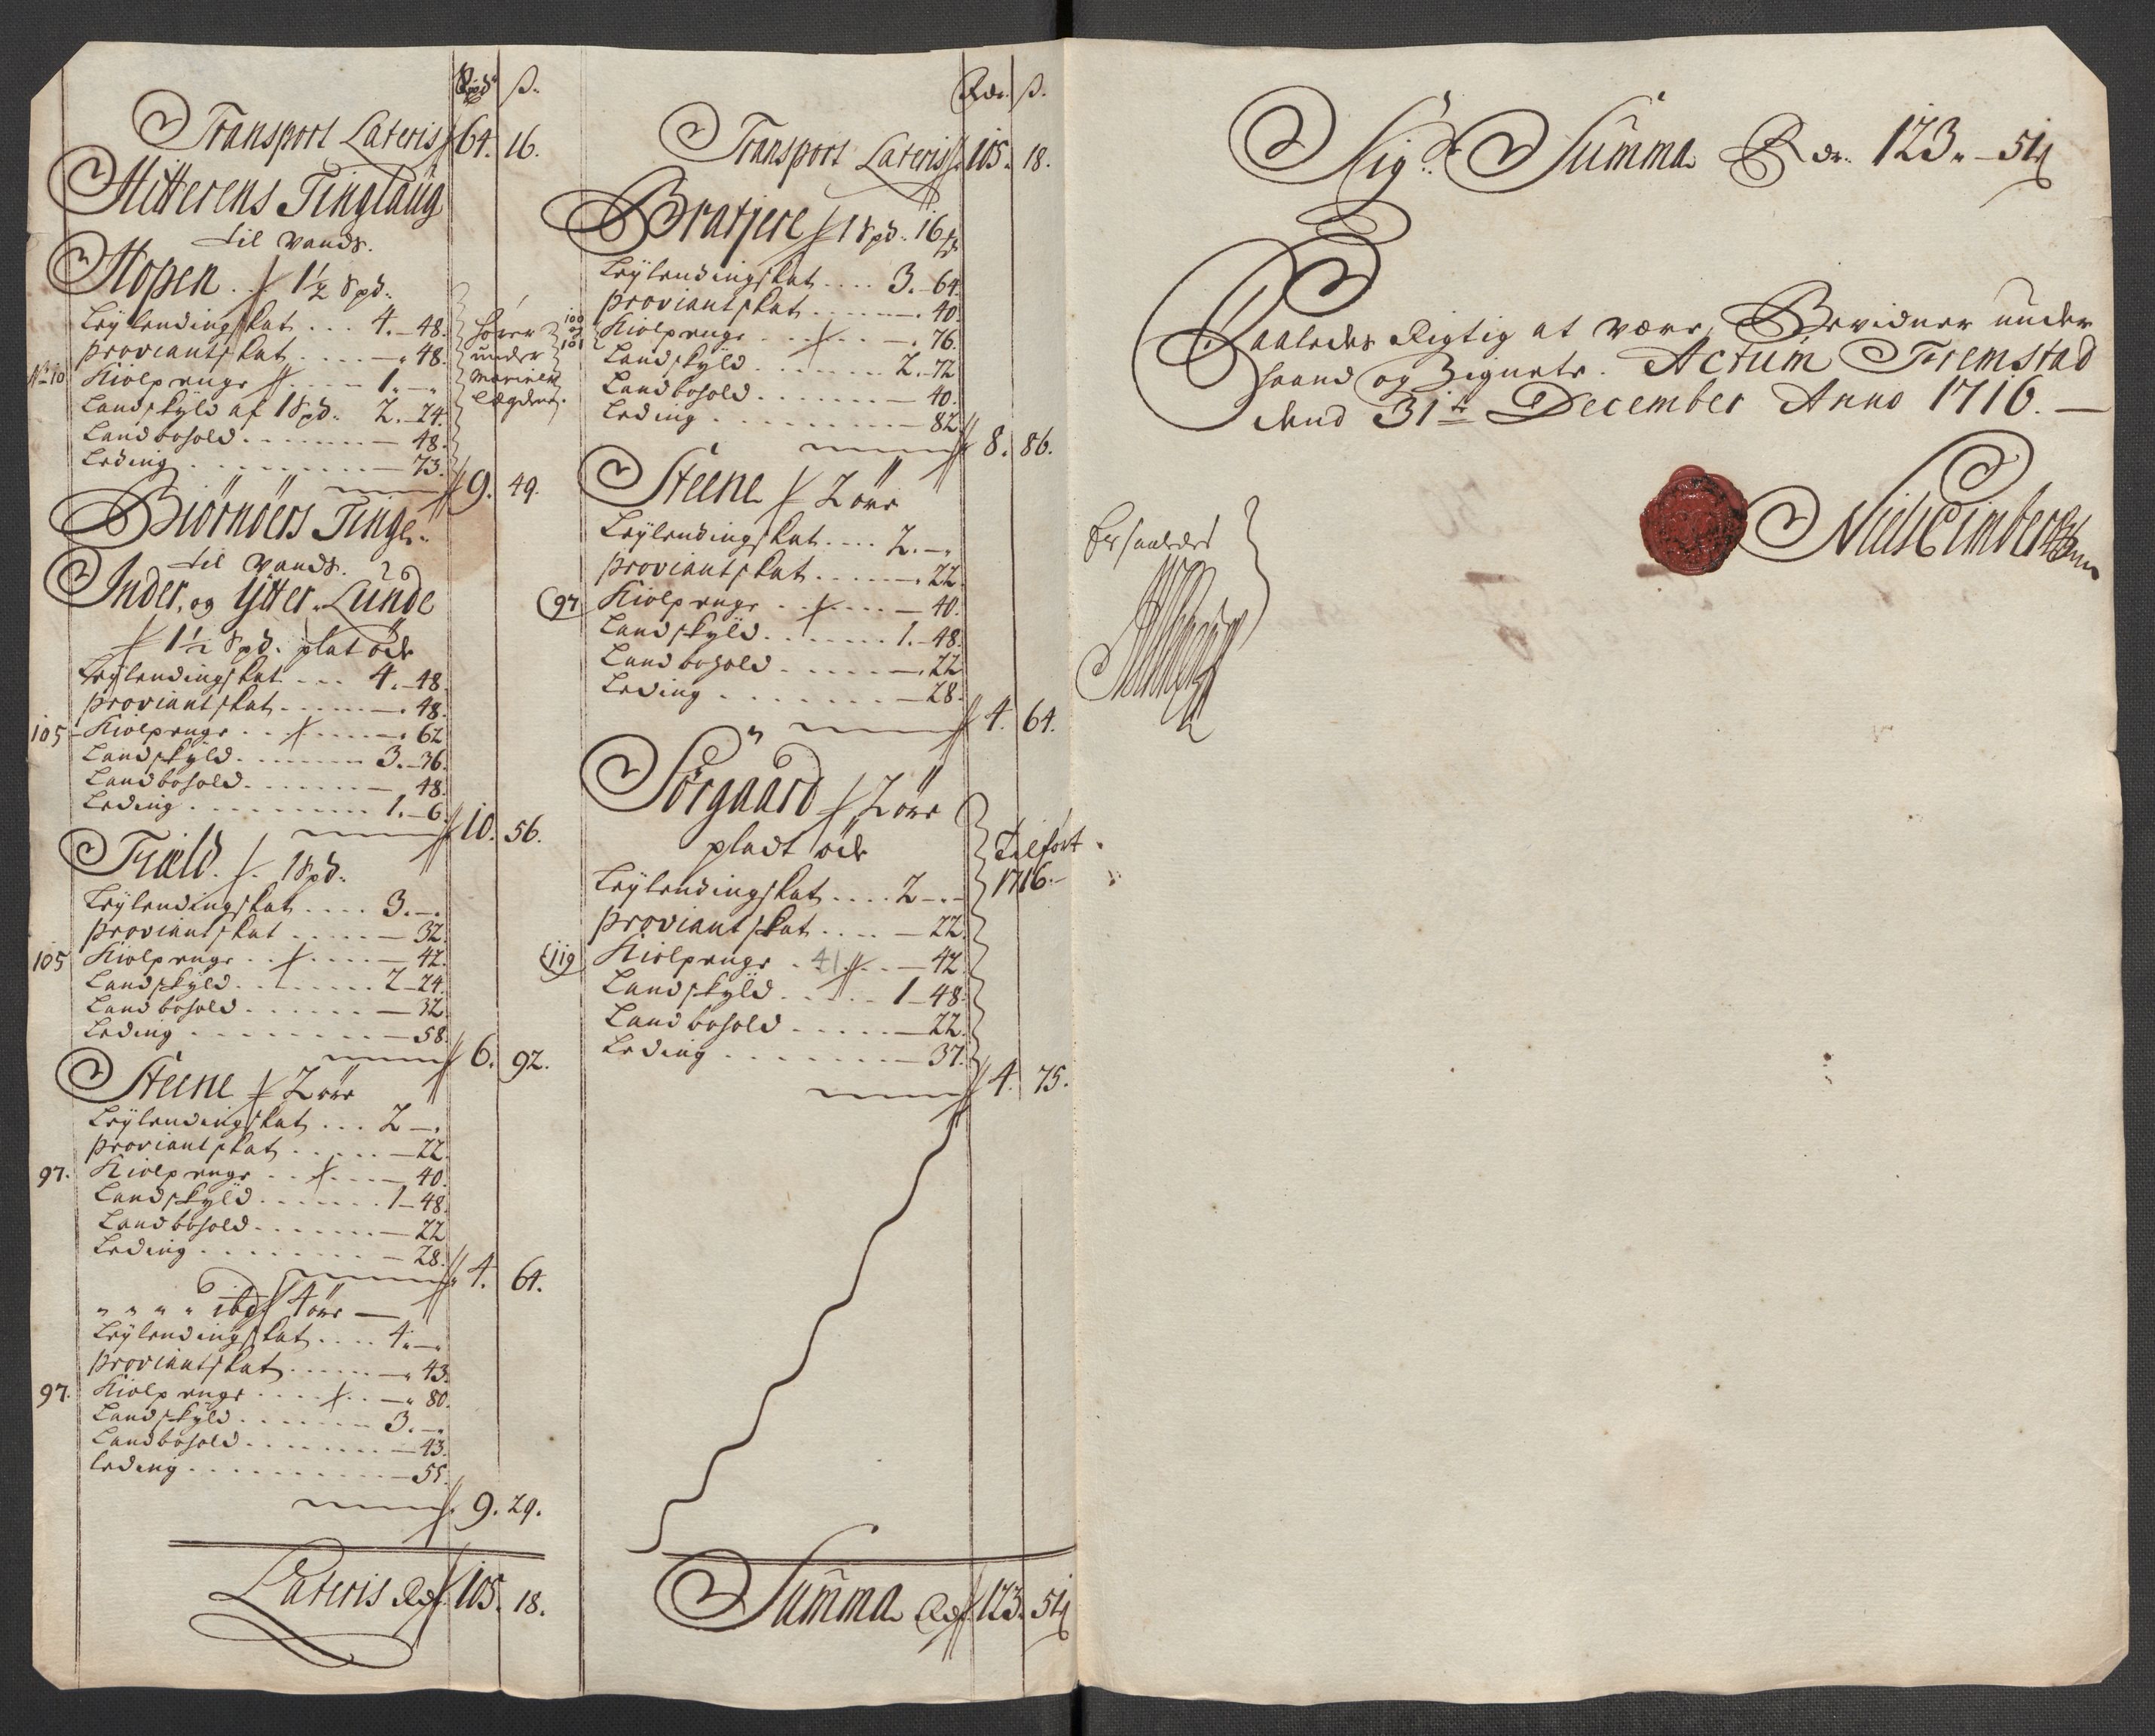 Rdr ß.
Transport Lateris 64. 16.
Hitterens Tinglaug
til Vands.
Hopen. 1½ Spd.
Leylendingskat ... 4.-48.
Proviantskat ... -.48.
No 10 Kiølpenge ... 1.-.
Landskyld af 1 Spd. 2.-24.
Landbohold ... - 48.
Leding ... - 73.
hører
under
Marinens
Lægderne.
9. 49.
Biørnøers Tingl.
til Vands.
Inder, og Ytter-Lunde
1½ Spd. plat øde
Leylendingskat ... 4.-48.
Proviantskat ... -.48.
105 Kiølpenge ... -.62
Landskyld ... 3.-36.
Landbohold ... - 48.
Leding ... 1.-6.
10. 56.
Fiæld. 1 Spd.
Leylendingskat ... 3.-.
Proviantskat ... - 32.
105 Kiølpenge ... - 42.
Landskyld ... 2-24.
Landbohold ... - 32.
Leding ... - 58.
6. 92.
Steene 2 øre
Leylendingskat ... 2-.
Proviantskat ... - 22.
97. Kiølpenge ... - 40.
Landskyld ... 1-48.
Landbohold ... - 22
Leding ... - 28.
4. 64.
" " " " ibd 4 øre -
Leylendingskat ... 4.-.
Proviantskat ... -.43.
97. Kiølpenge ... -.80.
Landskyld ... 3.-.
Landbohold ... - 43.
Leding ... - 55.
9. 29.
Lateris Rd 105. 18.
Rdr. ß.
Transport Lateris 105. 18.
Bratjere 1 Spd. 16
Leylendingskat ... 3.-64.
Proviantskat ... -.40.
100 og 101 Kiølpenge ... -.76.
Landskyld ... 2.-72
Landbohold ... - 40.
Leding ... - 82.
8. 86.
Steene 2 øre
Leylendingskat ... 2.-.
Proviantskat ... -.22.
97 Kiølpenge ... - 40.
Landskyld ... 1.-48.
Landbohold ... -.22
Leding ... - 28.
4. 64.
Sørgaard 2 øre
pladt øde
Tilført
1716.-
Leylendingskat ... 2-.-
Proviantskat ... - 22.
119 Kiølpenge . 41 .. - 42.
Landskyld ... 1-48.
Landbohold ... - 22.
Leding ... - 37.
4. 75.
Summa Rd 123. 51
Sig. Summa Rdr. 123.-51
Saaledes Rigtig at være, Bevidner under
haand og Zignete. Actum Fremstad
dend 31te December Anno 1716.-
Er saaledes